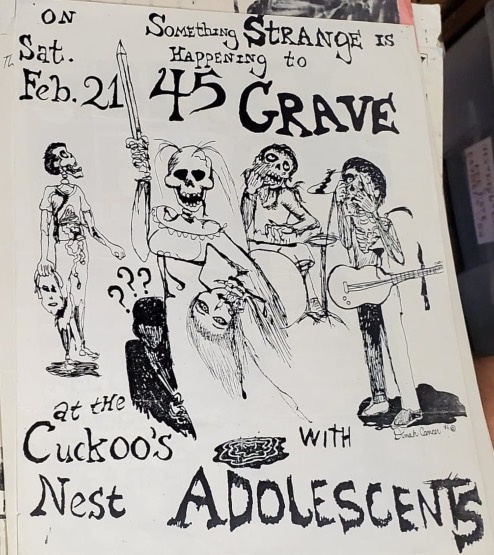 ON
Sat.
Feb. 21
SOMETHING STRANGE IS
HAPPENING to
45 GRAVE
???
at tHE
CUCKOO'S
NEST
WITH
Dinah Cancer
ADOLESCENTS